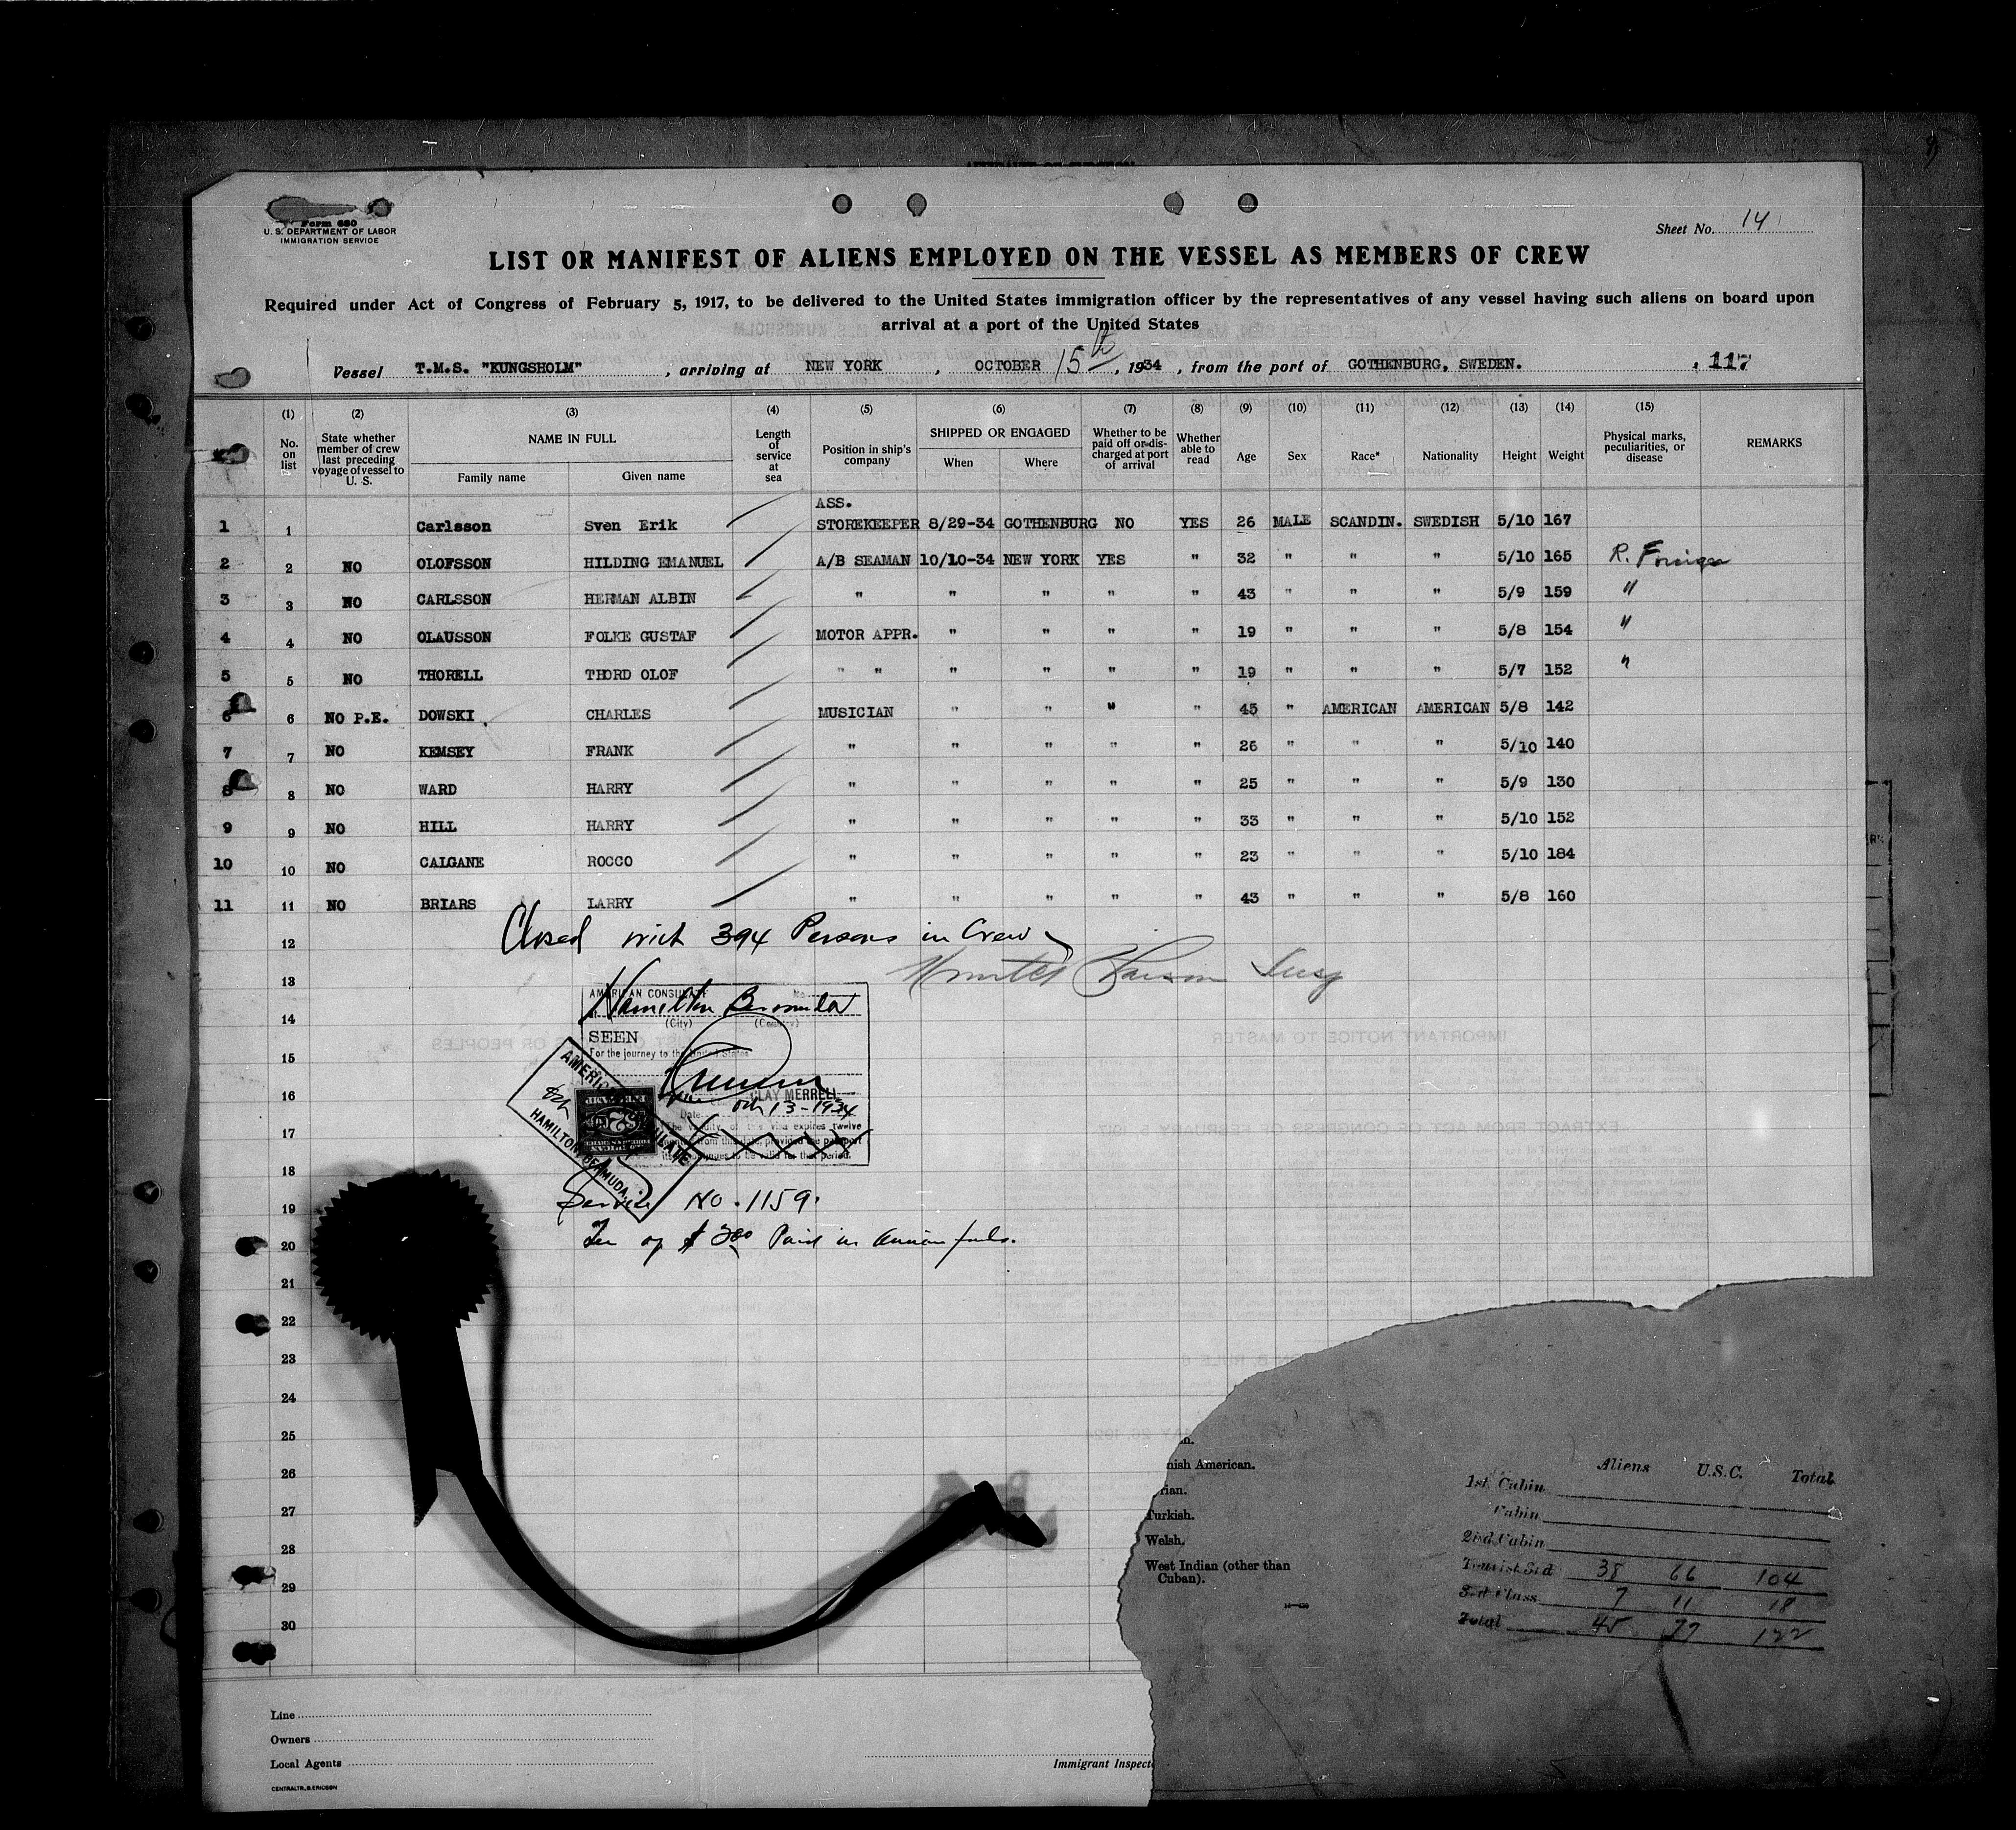 Form 680
U. S. DEPARTMENT OF LABOR
IMMIGRATION SERVICE
Sheet No. 14
LIST OR MANIFEST OF ALIENS EMPLOYED ON THE VESSEL AS MEMBERS OF CREW
Required under Act of Congress of February 5, 1917, to be delivered to the United States immigration officer by the representatives of any vessel having such aliens on board upon
arrival at a port of the United States
Vessel T.M.S. "KUNGSHOLM", arriving at NEW YORK, OCTOBER 15th, 1934, from the port of GOTHENBURG, SWEDEN. , 117
(1) (2) (3) (4) (5) (6) (7) (8) (9) (10) (11) (12) (13) (14) (15)
No. on list | State whether member of crew last preceding voyage of vessel to U. S. | NAME IN FULL Family name Given name | Length of service at sea | Position in ship's company | SHIPPED OR ENGAGED When Where | Whether to be paid off or discharged at port of arrival | Whether able to read | Age | Sex | Race* | Nationality | Height | Weight | Physical marks, peculiarities, or disease | REMARKS
ASS.
1 1 Carlsson Sven Erik STOREKEEPER 8/29-34 GOTHENBURG NO YES 26 MALE SCANDIN. SWEDISH 5/10 167
2 2 NO OLOFSSON HILDING EMANUEL A/B SEAMAN 10/10-34 NEW YORK YES " 32 " " " 5/10 165 R. Foreign
3 3 NO CARLSSON HERMAN ALBIN " " " " " 43 " " " 5/9 159 "
4 4 NO OLAUSSON FOLKE GUSTAF MOTOR APPR. " " " " 19 " " " 5/8 154 "
5 5 NO THORELL THORD OLOF " " " " " " 19 " " " 5/7 152 "
6 6 NO P.E. DOWSKI CHARLES MUSICIAN " " " " 45 " AMERICAN AMERICAN 5/8 142
7 7 NO KEMSEY FRANK " " " " " 26 " " " 5/10 140
8 8 NO WARD HARRY " " " " " 25 " " " 5/9 130
9 9 NO HILL HARRY " " " " " 33 " " " 5/10 152
10 10 NO CALGANE ROCCO " " " " " 23 " " " 5/10 184
11 11 NO BRIARS LARRY " " " " " 43 " " " 5/8 160
Closed with 394 Persons in Crew
12
13
14
15
16
17
18
19
20
21
22
23
24
25
26
27
28
29
30
AMERICAN CONSULATE No.
Hamilton Bermuda
(City) (Country)
SEEN
For the journey to the United States
CLAY MERRELL
Date Oct 13-1934
The validity of this visa expires twelve
months from this date, provided the passport
continues to be valid for that period.
AMERICAN CONSULATE
HAMILTON, BERMUDA
Service No. 1159.
Fee of $ 2.00 Paid in
nish American.
rian.
Turkish.
Welsh.
West Indian (other than
Cuban).
Aliens U.S.C. Total
1st Cabin
Cabin
2nd Cabin
Tourist 3rd 38 66 104
3rd Class 7 11 18
Total 45 77 122
Line
Owners
Local Agents
Immigrant Inspect
CENTRALTR., B. ERICSON